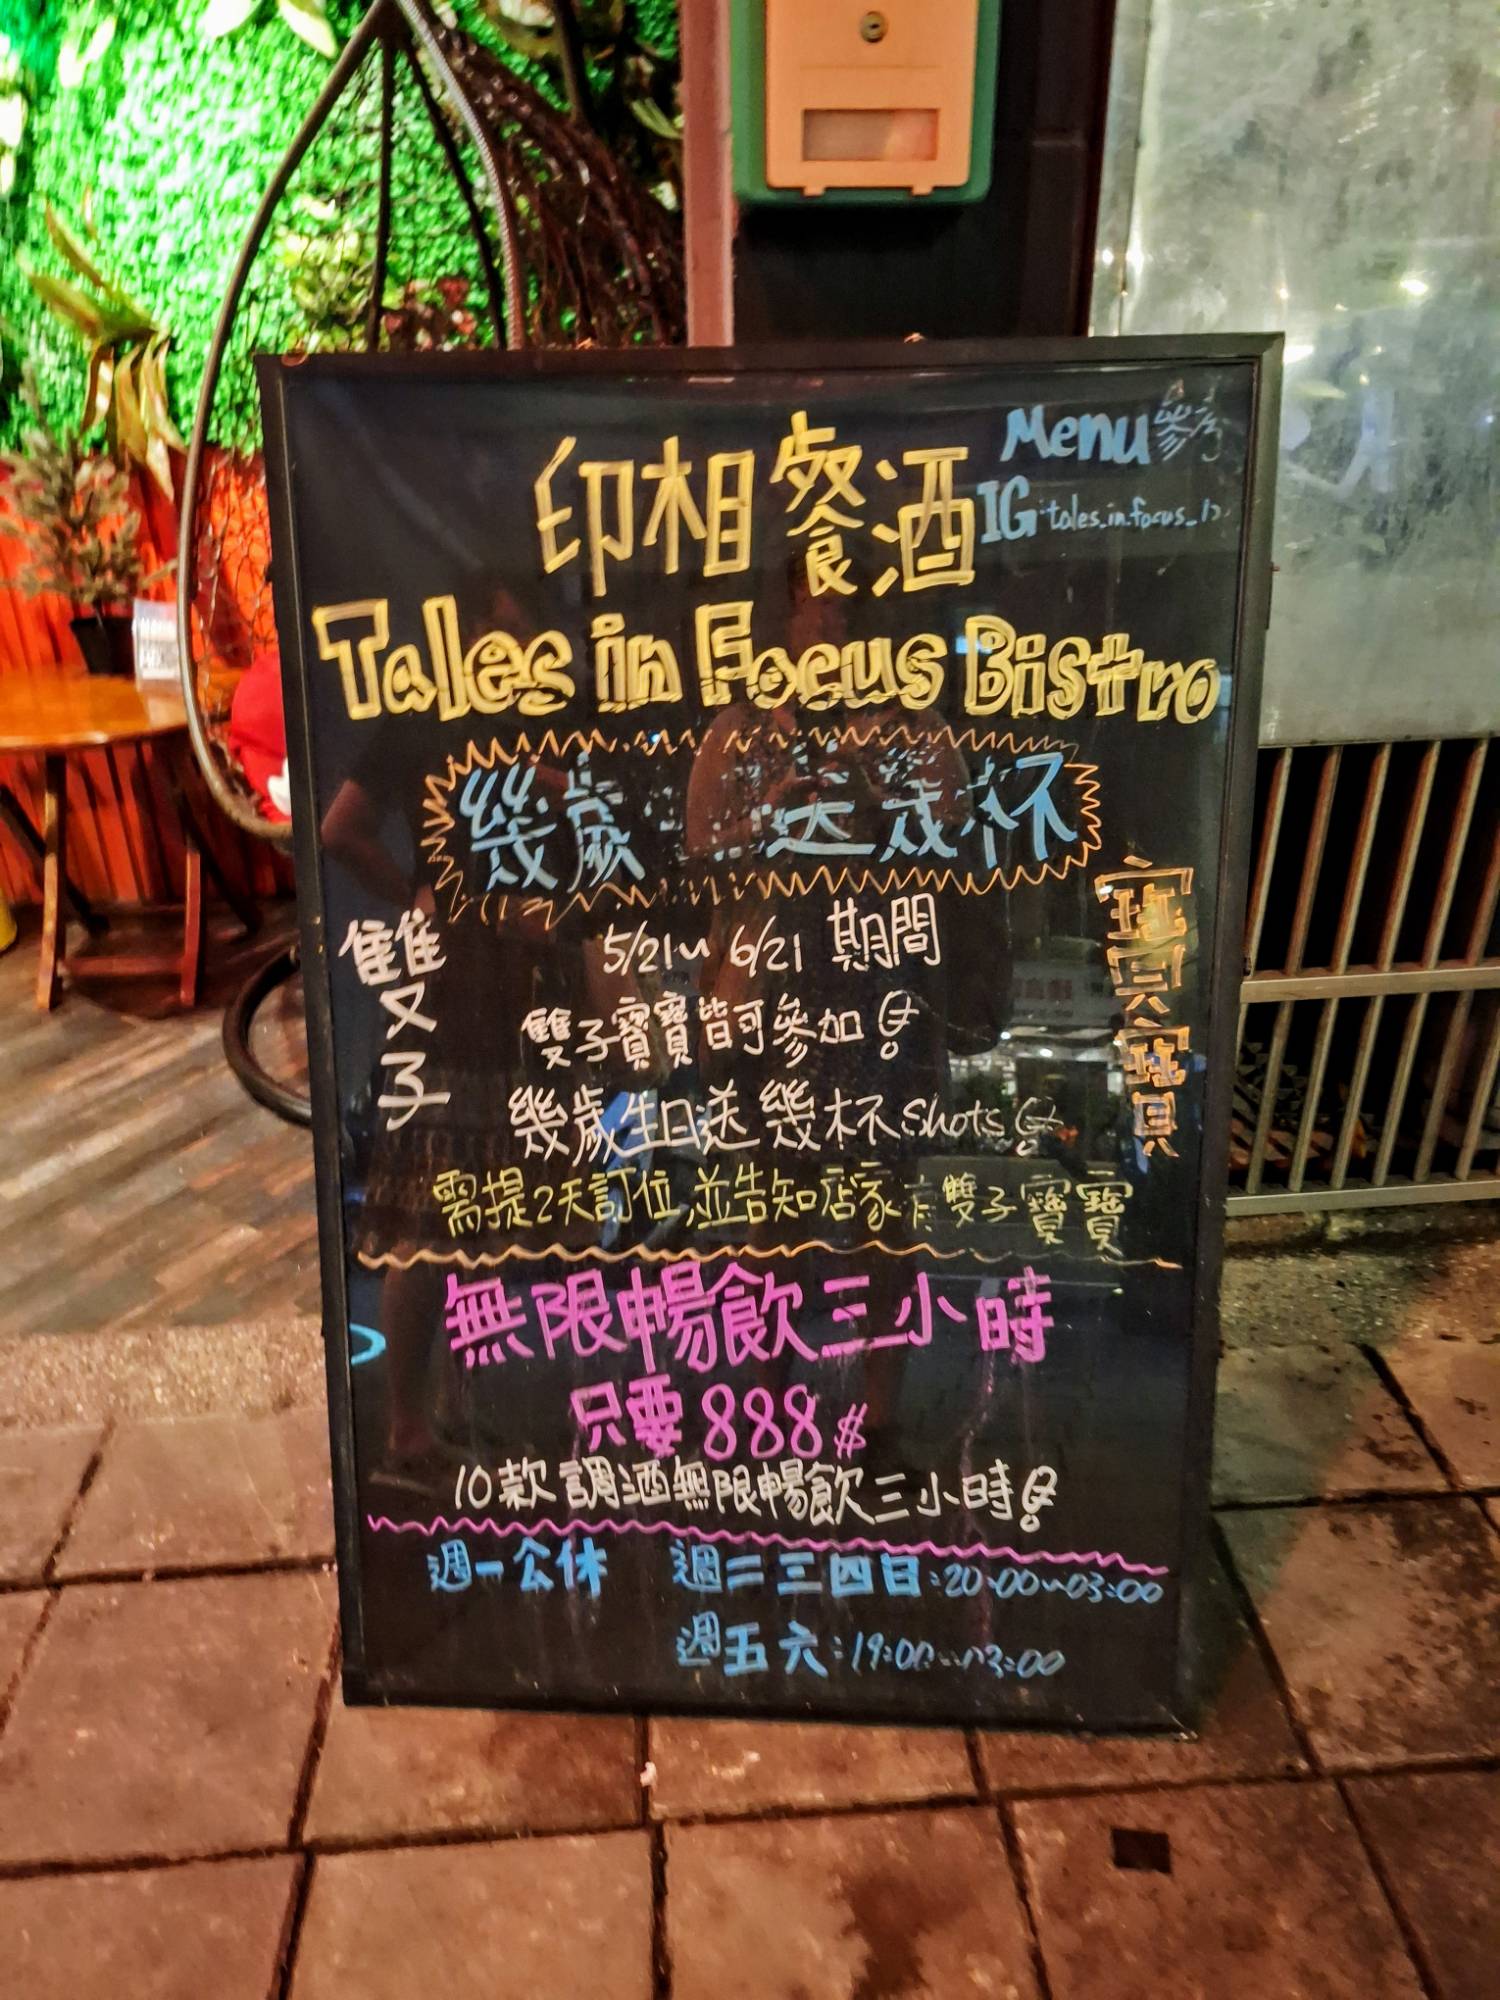 印相餐酒
Menu參考
IG:tales_in_focus_
Tales in Focus Bistro
幾歲 送幾杯
雙子
寶貝寶貝
5/21~6/21 期間
雙子寶寶皆可參加!
幾歲生日送幾杯shots!
需提2天訂位,並告知店家有雙子寶寶
無限暢飲三小時
只要888$
10款調酒無限暢飲三小時!
週一公休 週二三四日:20:00~03:00
週五六:19:00~03:00